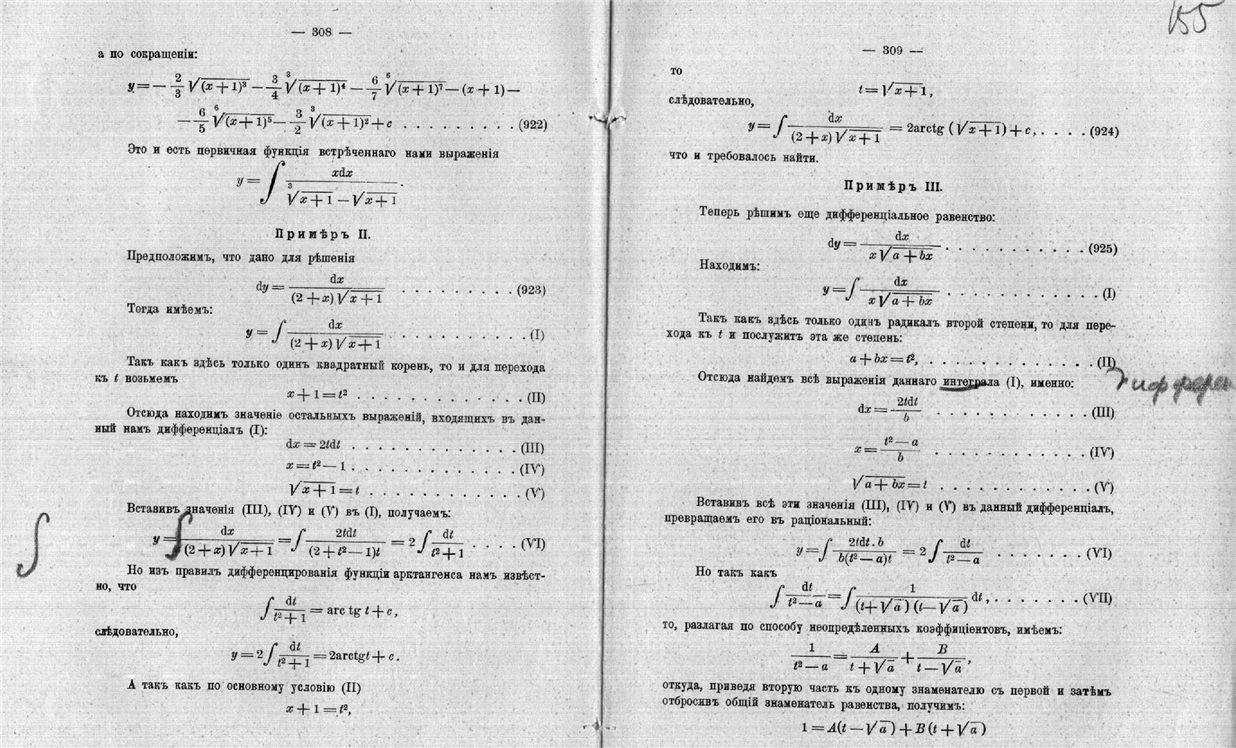 — 308 —
а по сокращеніи:
y = — 2/3 √(x + 1)³ — 3/4 ³√(x + 1)⁴ — 6/7 ⁶√(x + 1)⁷ — (x + 1) —
— 6/5 ⁶√(x + 1)⁵ — 3/2 ³√(x + 1)² + c . . . . . . . . . . . (922)
Это и есть первичная функція встрѣченнаго нами выраженія
y = ∫ xdx / (³√x + 1 — √x + 1) .
Примѣръ II.
Предположимъ, что дано для рѣшенія
dy = dx / ((2 + x) √x + 1) . . . . . . . . . . (923)
Тогда имѣемъ:
y = ∫ dx / ((2 + x) √x + 1) . . . . . . . . . . (I)
Такъ какъ здѣсь только одинъ квадратный корень, то и для перехода
къ t возьмемъ
x + 1 = t² . . . . . . . . . . . . (II)
Отсюда находимъ значеніе остальныхъ выраженій, входящихъ въ дан-
ный намъ дифференціалъ (I):
dx = 2tdt . . . . . . . . . . . . (III)
x = t² — 1 . . . . . . . . . . . . (IV)
√x + 1 = t . . . . . . . . . . . . (V)
Вставивъ значенія (III), (IV) и (V) въ (I), получаемъ:
∫ y = ∫ dx / ((2 + x) √x + 1) = ∫ 2tdt / ((2 + t² — 1)t) = 2 ∫ dt / (t² + 1) . . . . (VI)
Но изъ правилъ дифференцированія функціи арктангенса намъ извѣст-
но, что
∫ dt / (t² + 1) = arc tg t + c ,
слѣдовательно,
y = 2 ∫ dt / (t² + 1) = 2arctgt + c .
А такъ какъ по основному условію (II)
x + 1 = t²,
155
— 309 —
то
t = √x + 1,
слѣдовательно,
y = ∫ dx / ((2 + x) √x + 1) = 2arctg (√x + 1) + c, . . . . (924)
что и требовалось найти.
Примѣръ III.
Теперь рѣшимъ еще дифференціальное равенство:
dy = dx / (x √a + bx) . . . . . . . . . . . (925)
Находимъ:
y = ∫ dx / (x √a + bx) . . . . . . . . . . . (I)
Такъ какъ здѣсь только одинъ радикалъ второй степени, то для пере-
хода къ t и послужитъ эта же степень:
a + bx = t², . . . . . . . . . . . . (II)
Отсюда найдемъ всѣ выраженія даннаго интеграла (I), именно: дифферен
dx = 2tdt / b . . . . . . . . . . . . (III)
x = (t² — a) / b . . . . . . . . . . . . (IV)
√a + bx = t . . . . . . . . . . . . (V)
Вставивъ всѣ эти значенія (III), (IV) и (V) въ данный дифференціалъ,
превращаемъ его въ раціональный:
y = ∫ 2tdt . b / (b(t² — a)t) = 2 ∫ dt / (t² — a) . . . . . . . . (VI)
Но такъ какъ
∫ dt / (t² — a) = ∫ 1 / ((t + √a) (t — √a)) dt, . . . . . . . . (VII)
то, разлагая по способу неопредѣленныхъ коэффиціентовъ, имѣемъ:
1 / (t² — a) = A / (t + √a) + B / (t — √a) ,
откуда, приведя вторую часть къ одному знаменателю съ первой и затѣмъ
отбросивъ общій знаменатель равенства, получимъ:
1 = A(t — √a) + B(t + √a)